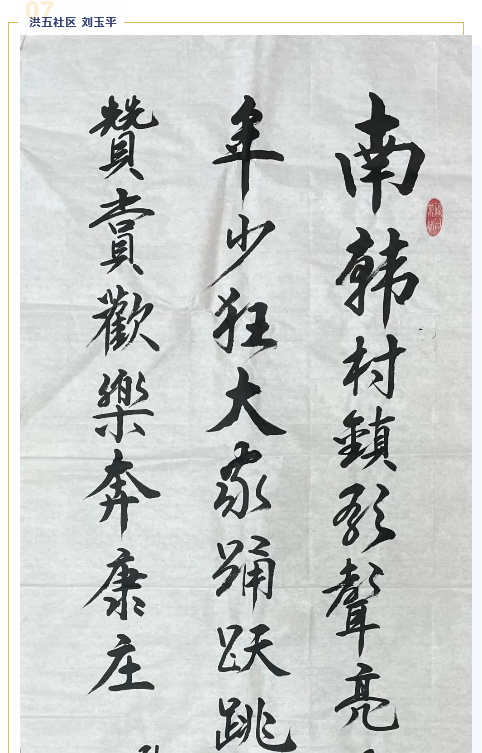 07
洪五社区 刘玉平
南韩村鎮歌聲亮
年少狂大家踊跃跳
贊賞歡樂奔康庄